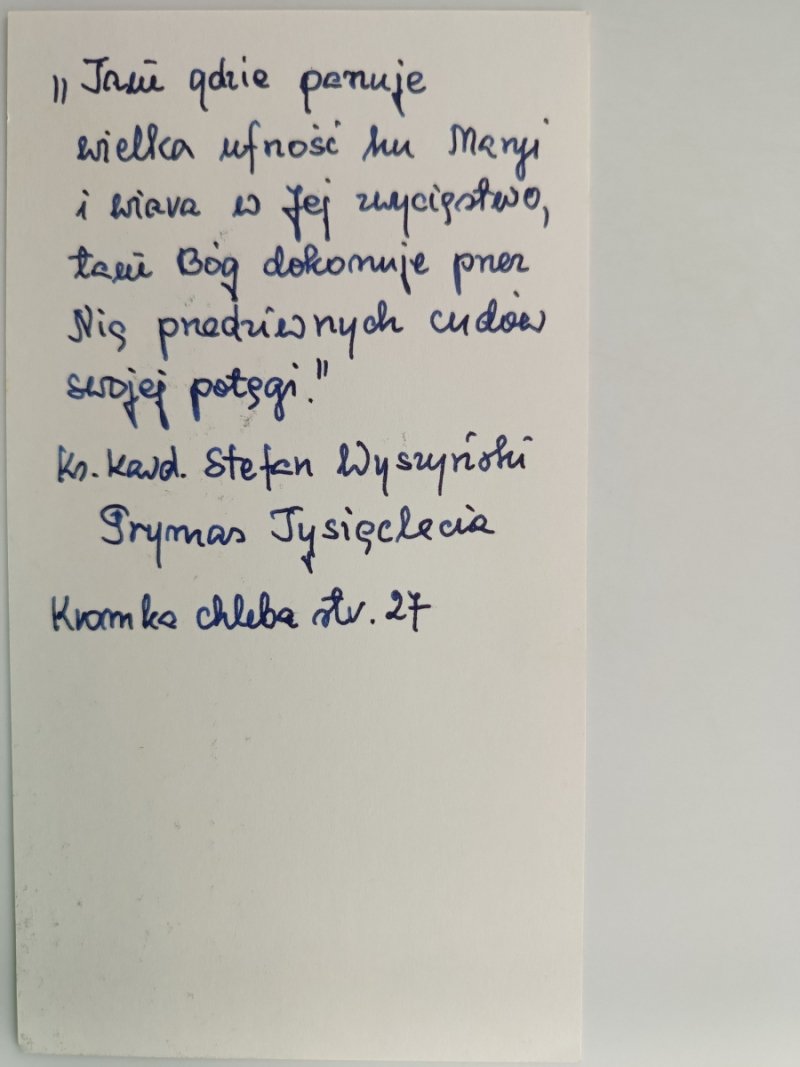 „Tam gdzie panuje
wielka ufność ku Maryi
i wiara w Jej zwycięstwo,
tam Bóg dokonuje przez
Nią przedziwnych cudów
swojej potęgi."
Ks. Kard. Stefan Wyszyński
Prymas Tysiąclecia
Kromka chleba str. 27